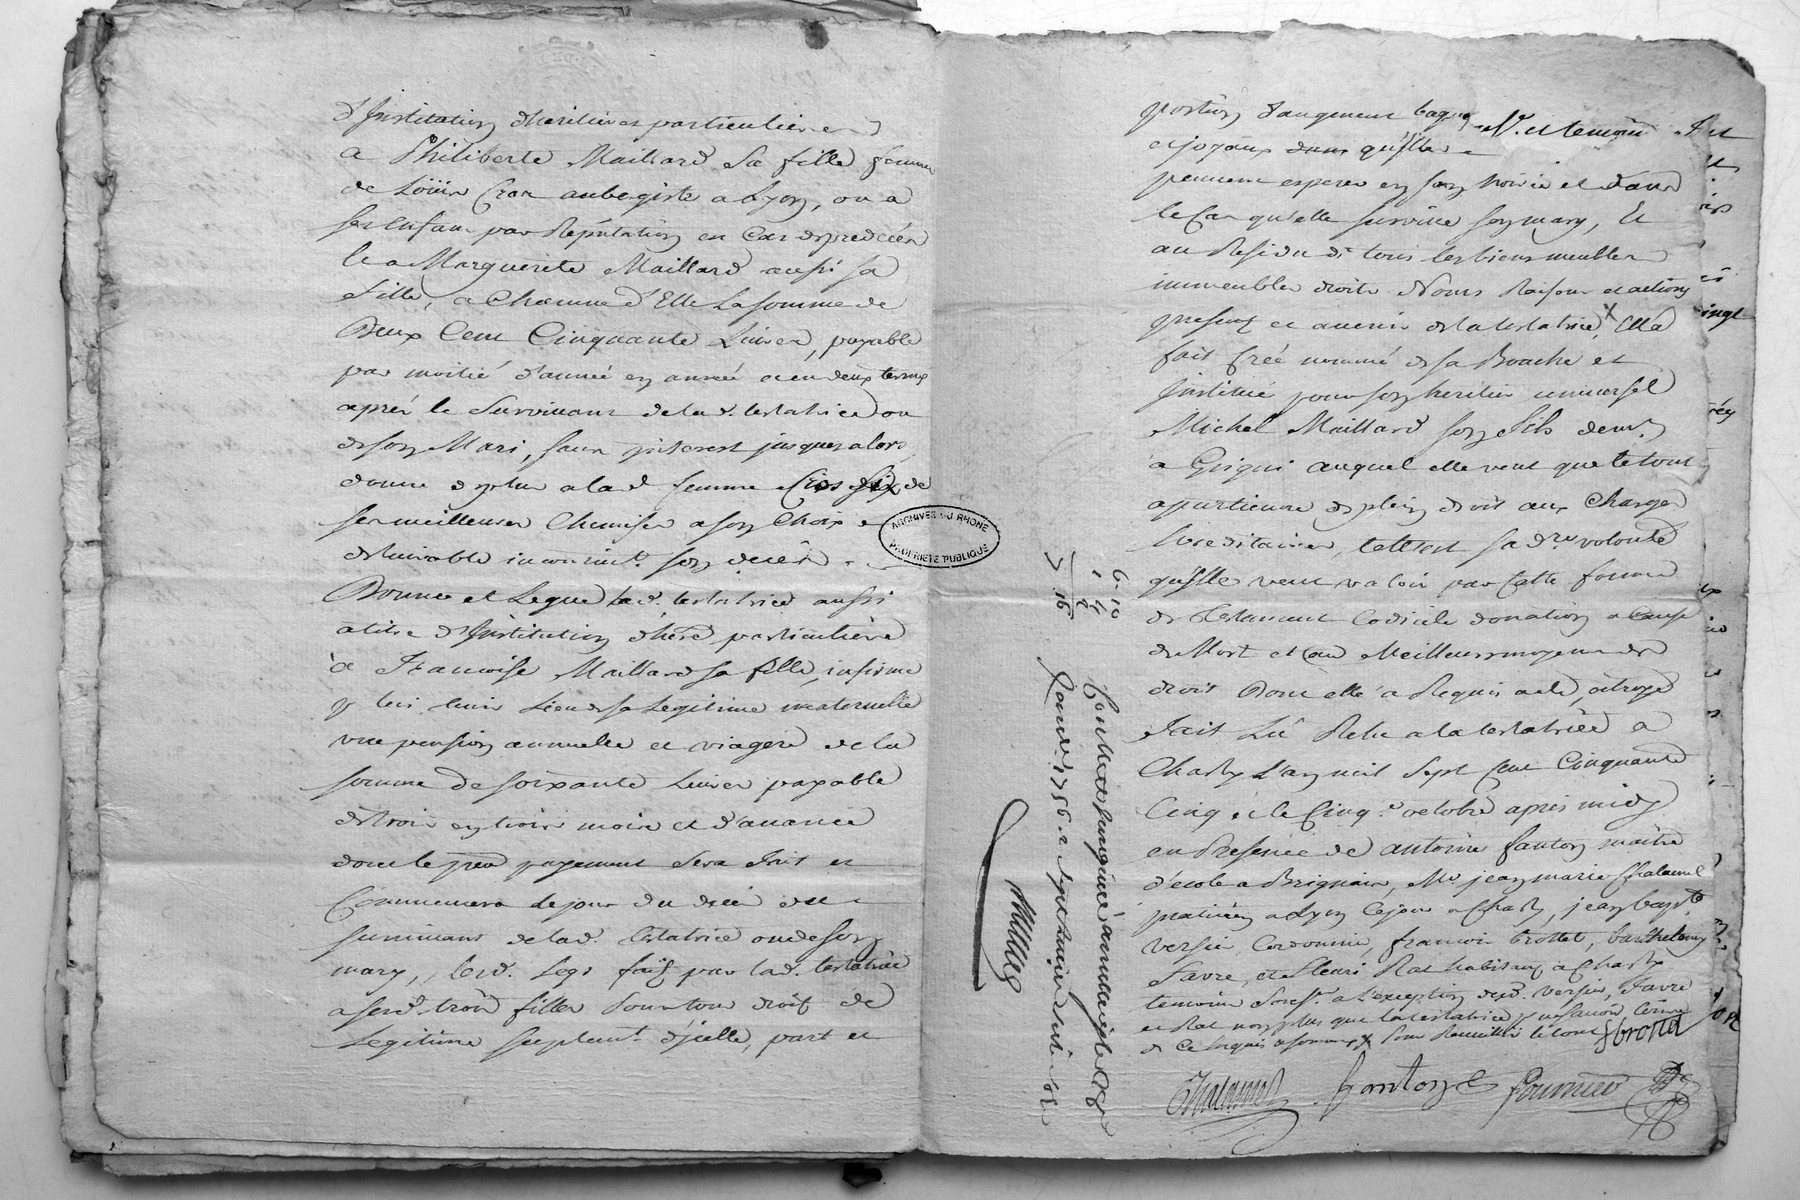 d'Institution d'heritieres particulieres
a Philiberte Maillard Sa fille femme
de Loüis Cros aubergiste a Lyon, ou a
ses enfans par Reputation en Cas de predeces
le a Marguerite Maillard aussi sa
fille, a Chacune d'Elle La somme de
Deux Cent Cinquante Livres, payable
par moitié d'année en année et en deux termes
aprés le Survivant de lad. testatrice ou
de son Mari, sans interest jusques alors
donne de plus a lad. femme Cros six de
ses meilleures Chemises a son Choix
delivrable incontint. son decés
Donne et Legue lad. testatrice aussi
a titre d'Institution d'here. particuliere
a Francoise Maillard sa fille, infirme
y lui tenir Lieu de sa Legitime maternelle
une pension annuelle et viagere de la
somme de soixante Livres payable
de trois en trois mois et d'avance
dont le per. payement sera fait et
Commencera Le jour du decé du
survivant de lad. testatrice ou de son
mary, lesd. Legs faits par lad. testatrice
a sesd. trois filles Pour tou droit de
Legitime suplemt. d'jcelle, part et
portion d'augment bagues
et joyaux dans qu'Elles
peuvent esperer en son hoirie et dans
le Cas qu'elle survive son mary, Et
au Residu de tous les biens meubles
immeubles droits Noms Raisons et actions
presens et avenir de la testatrice, Ella
fait Créé nommé de sa Bouche et
Institué pour son heritier universel
Michel Maillard son fils demt.
a Grigni auquel elle veut que le tout
apartienne de plein droit aux Charges
hereditaires, telle est sa dre. volonté
qu'Elle veut valoir par Cette forme
de Testament Codicile donation a Cause
de Mort et au Meilleurs moyens de
droit Dont elle a Requis acte, octroyé
fait Lû Relu a la testatrice a
Charly L'an mil Sept Cent Cinquante
Cinq & le Cinq.e octobre apres midy
en Presence de antoine fanton maitre
d'ecole a Brignais, Me. jean marie Chalamel
praticien a Lyon Ce jour a Charly, jean bapte.
versier Cordonnier, francois trottet, barthelemy
Favre, et Fleuri Rat habitans a Charly
temoins a L'exception desd. versier, Favre
et Rat non plus que la testatrice y ne savoir
de Ce Enquis et sommés
Chalamel fanton Fournier
6. 10
16
Controllé
1756